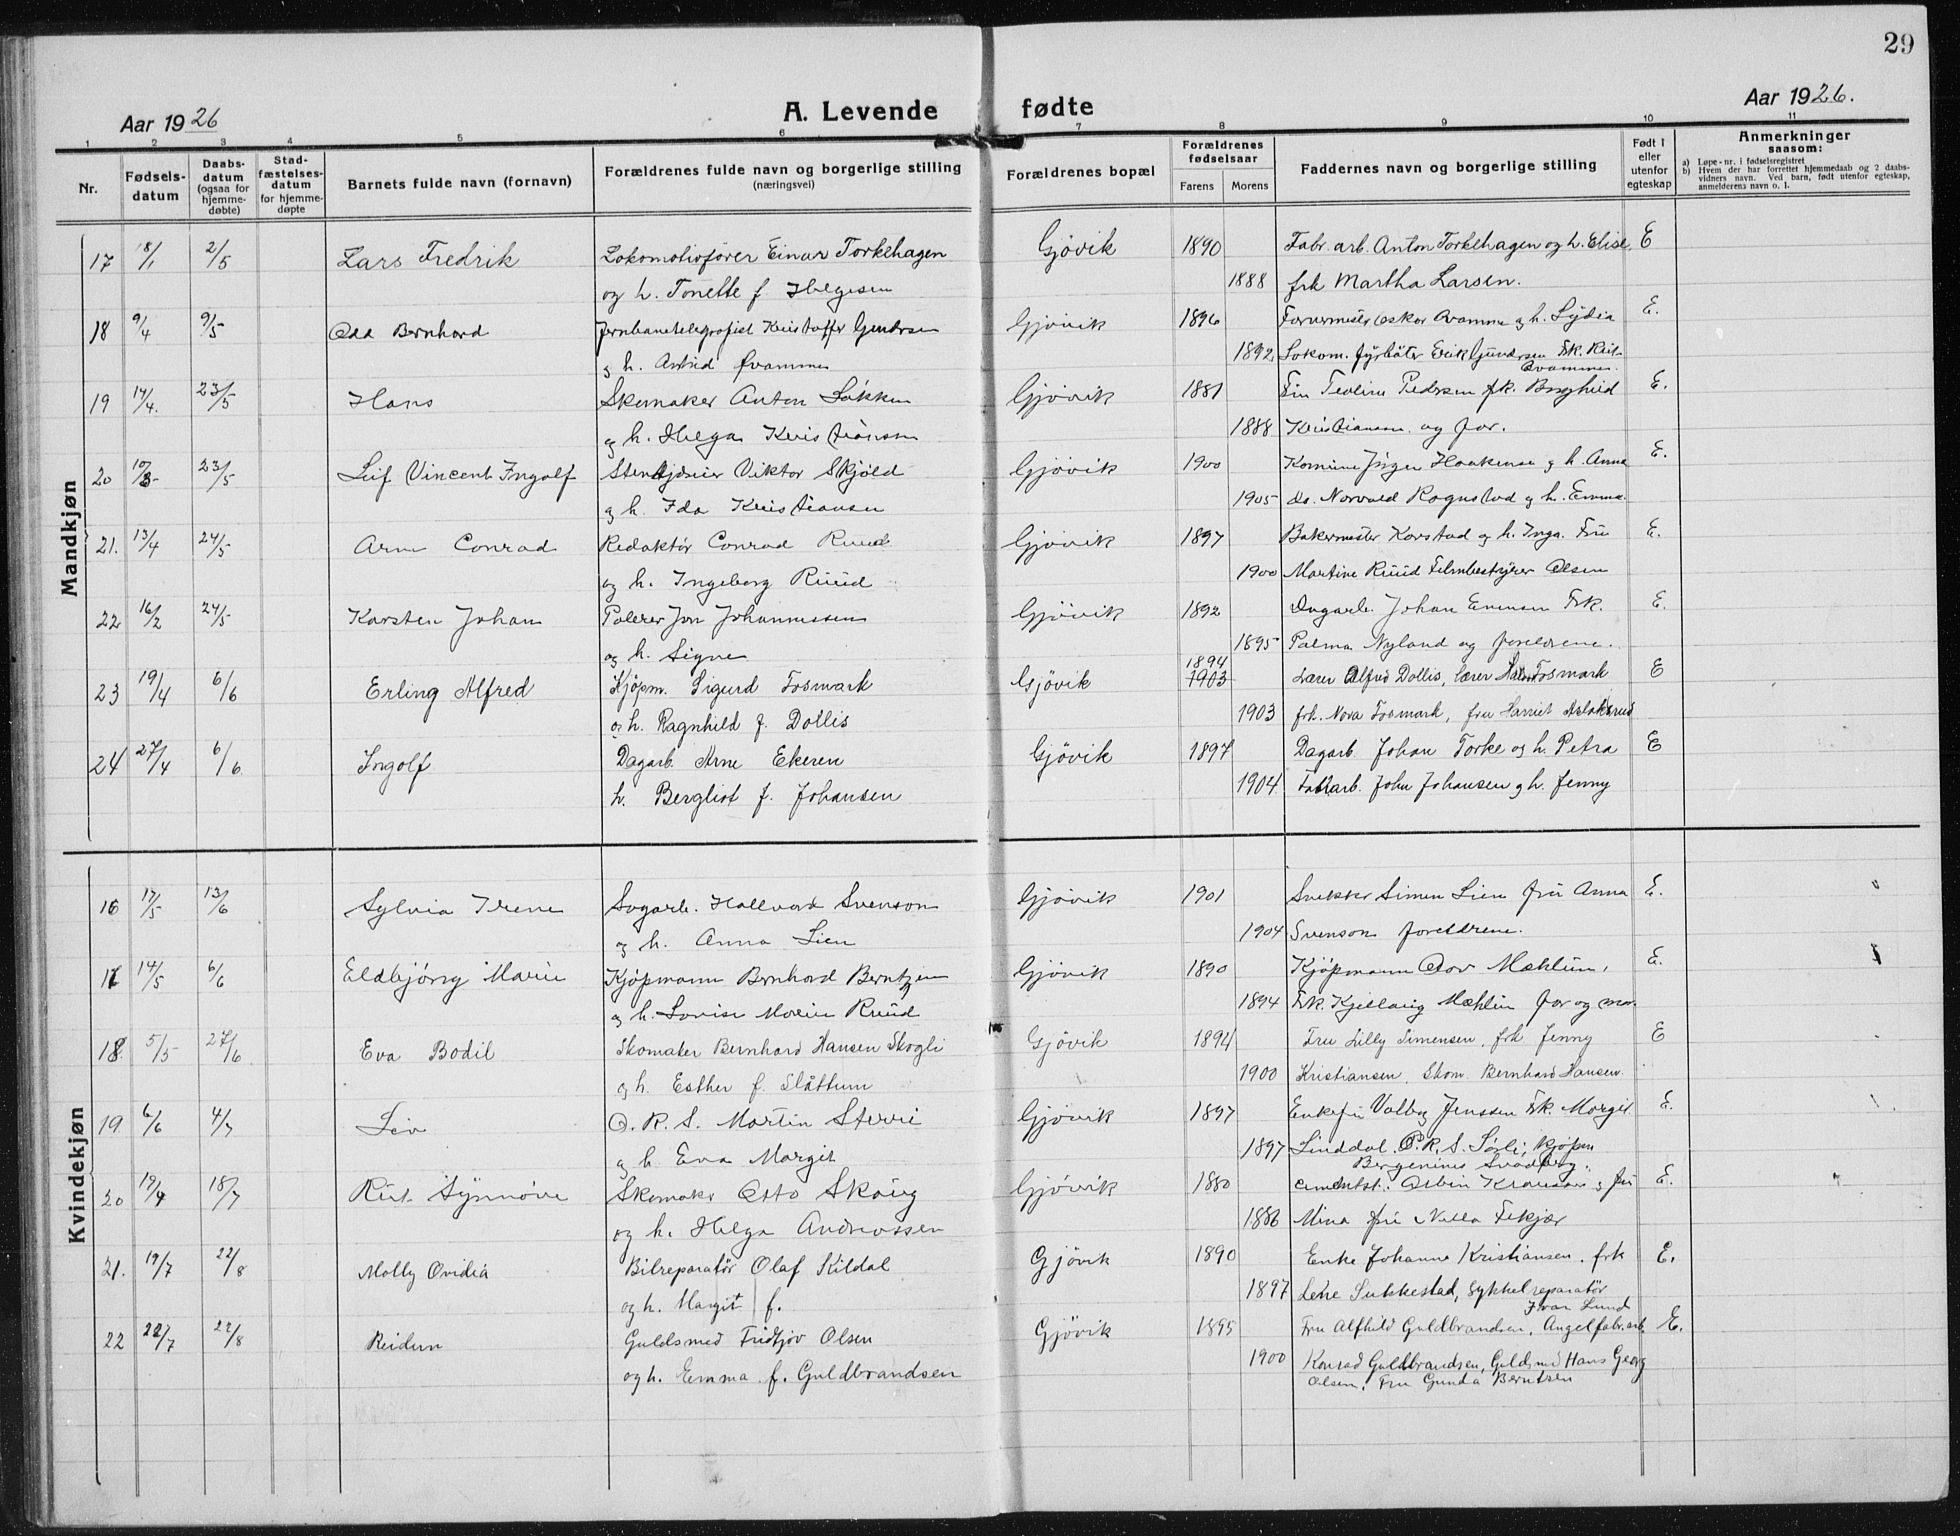 29
Aar 1926 A. Levende fødte Aar 1926.
1 2 3 4 5 6 7 8 9 10 11
Nr. Fødsels-datum Daabs-datum (ogsaa for hjemme-døbte) Stad-fæstelses-datum for hjemme-døpte Barnets fulde navn (fornavn) Forældrenes fulde navn og borgerlige stilling (næringsvei) Forældrenes bopæl Forældrenes fødselsaar Farens Morens Faddernes navn og borgerlige stilling Født i eller utenfor egteskap Anmerkninger saasom:
a) Løpe-nr. i fødselsregistret
b) Hvem der har forrettet hjemmedaab og 2 daabs-vidners navn. Ved barn, født utenfor egteskap, anmelderens navn o. l.
Mandkjøn
17 18/1 2/5 Lars Fredrik Lokomotivfører Einar Torkehagen Gjövik 1890 Fabr. arb. Anton Torkehagen og h. Elise E
og h. Tonette f. Helgesen 1888 frk Martha Larsen.
18 9/4 9/5 Odd Bernhard Jernbanetelegrafist Kristoffer Gundersen Gjövik 1896 Oskar Kvamme og h. Lydia E.
og h. Astrid Kvamme 1892. Lokom. fyrbøter Erik Gundersen Frk. Rut
Kvamme.
19 14/4. 23/5 Hans Skomaker Anton Løkken Gjövik 1881 Teoline Pedersen frk. Borghild E.
og h. Helga Kristiansen 1888 Kristiansen og far.
20 10/3 23/5 Leif Vincent Ingolf Viktor Skjöld Gjövik 1900 Haakensen og h. Anna E.
og h. Ida Kristiansen 1905 do. Norvald Rognstad og h. Emma.
21. 13/4 24/5 Arne Conrad Redaktør Conrad Ruud Gjövik 1897 Bakermester Korstad og h. Inga. Fru E.
og h. Ingeborg Ruud 1900 Martine Ruud Filmbestyrer Olsen
22 16/2 24/5 Karsten Johan Polerer Jon Johannessen Gjövik 1892 Dagarb. Johan Evensen Frk. E.
og h. Signe 1895 Palma Nyland og foreldrene.
23 19/4 6/6 Erling Alfred Kjöpm. Sigurd Fosmark Gjövik 1894 1903 Lærer Alfred Dollis, lærer Hans Fosmark E
og h. Ragnhild f. Dollis 1903 frk. Nora Fosmark, fru Harriet Aslaksrud
24 27/4 6/6 Ingolf Dagarb. Arne Ekeren Gjövik 1897 Dagarb. Johan Torke og h. Petra E
h. Bergliot f. Johansen 1904 Fabr.arb. John Johansen og h. Jenny
Kvindekjøn
16 17/5 13/6 Sylvia Irene Sagarb. Hallvard Svenson Gjövik 1901 Snekker Simen Lien fru Anna E.
og h. Anna Lien 1904 Svenson foreldrene.
17 14/5 6/6 Eldbjörg Marie Kjöpmann Bernhard Berntzen Gjövik 1890 Kjöpmann Mæhlum, E.
og h. Lovise Marie Ruud 1894 Frk. Kjellaug Mæhlum far og mor.
18. 5/5 27/6 Eva Bodil Skomaker Bernhard Hansen Skogli Gjövik 1894 Fru Lilly Simensen, frk. Jenny E
og h. Esther f. Slåttum 1900 Kristiansen, Skom. Bernhard Hansen.
19. 6/6 4/7 Liv O. R. S. Martin Gjövik 1897 Enkefru Valborg Jenssen Frk. Margit E.
og h. Eva Margit 1897 Linddal. O. R. S. Sørli, kjöpm
20 19/4 18/7 Rut Synnöve Skomaker Otto Skaug Gjövik 1880 og fru E.
og h. Helga Andreassen 1886 Mina fru Nella Fekjær
21. 19/7 22/8 Molly Ovidia Bilreparatør Olaf Kildal Gjövik 1890 Enke Johanne Kristiansen, frk E.
og h. Margit f. 1897 Lene Sukkestad, sykkelreparatør
Ivar Lund
22 22/7 22/8 Reidun Guldsmed Fridtjov Olsen Gjövik 1895 Fru Alfhild Guldbrandsen, Angelfabr.arb. E.
og h. Emma f. Guldbrandsen 1900 Konrad Guldbrandsen, Guldsmed Hans Georg
Olsen, Fru Gunda Berntsen